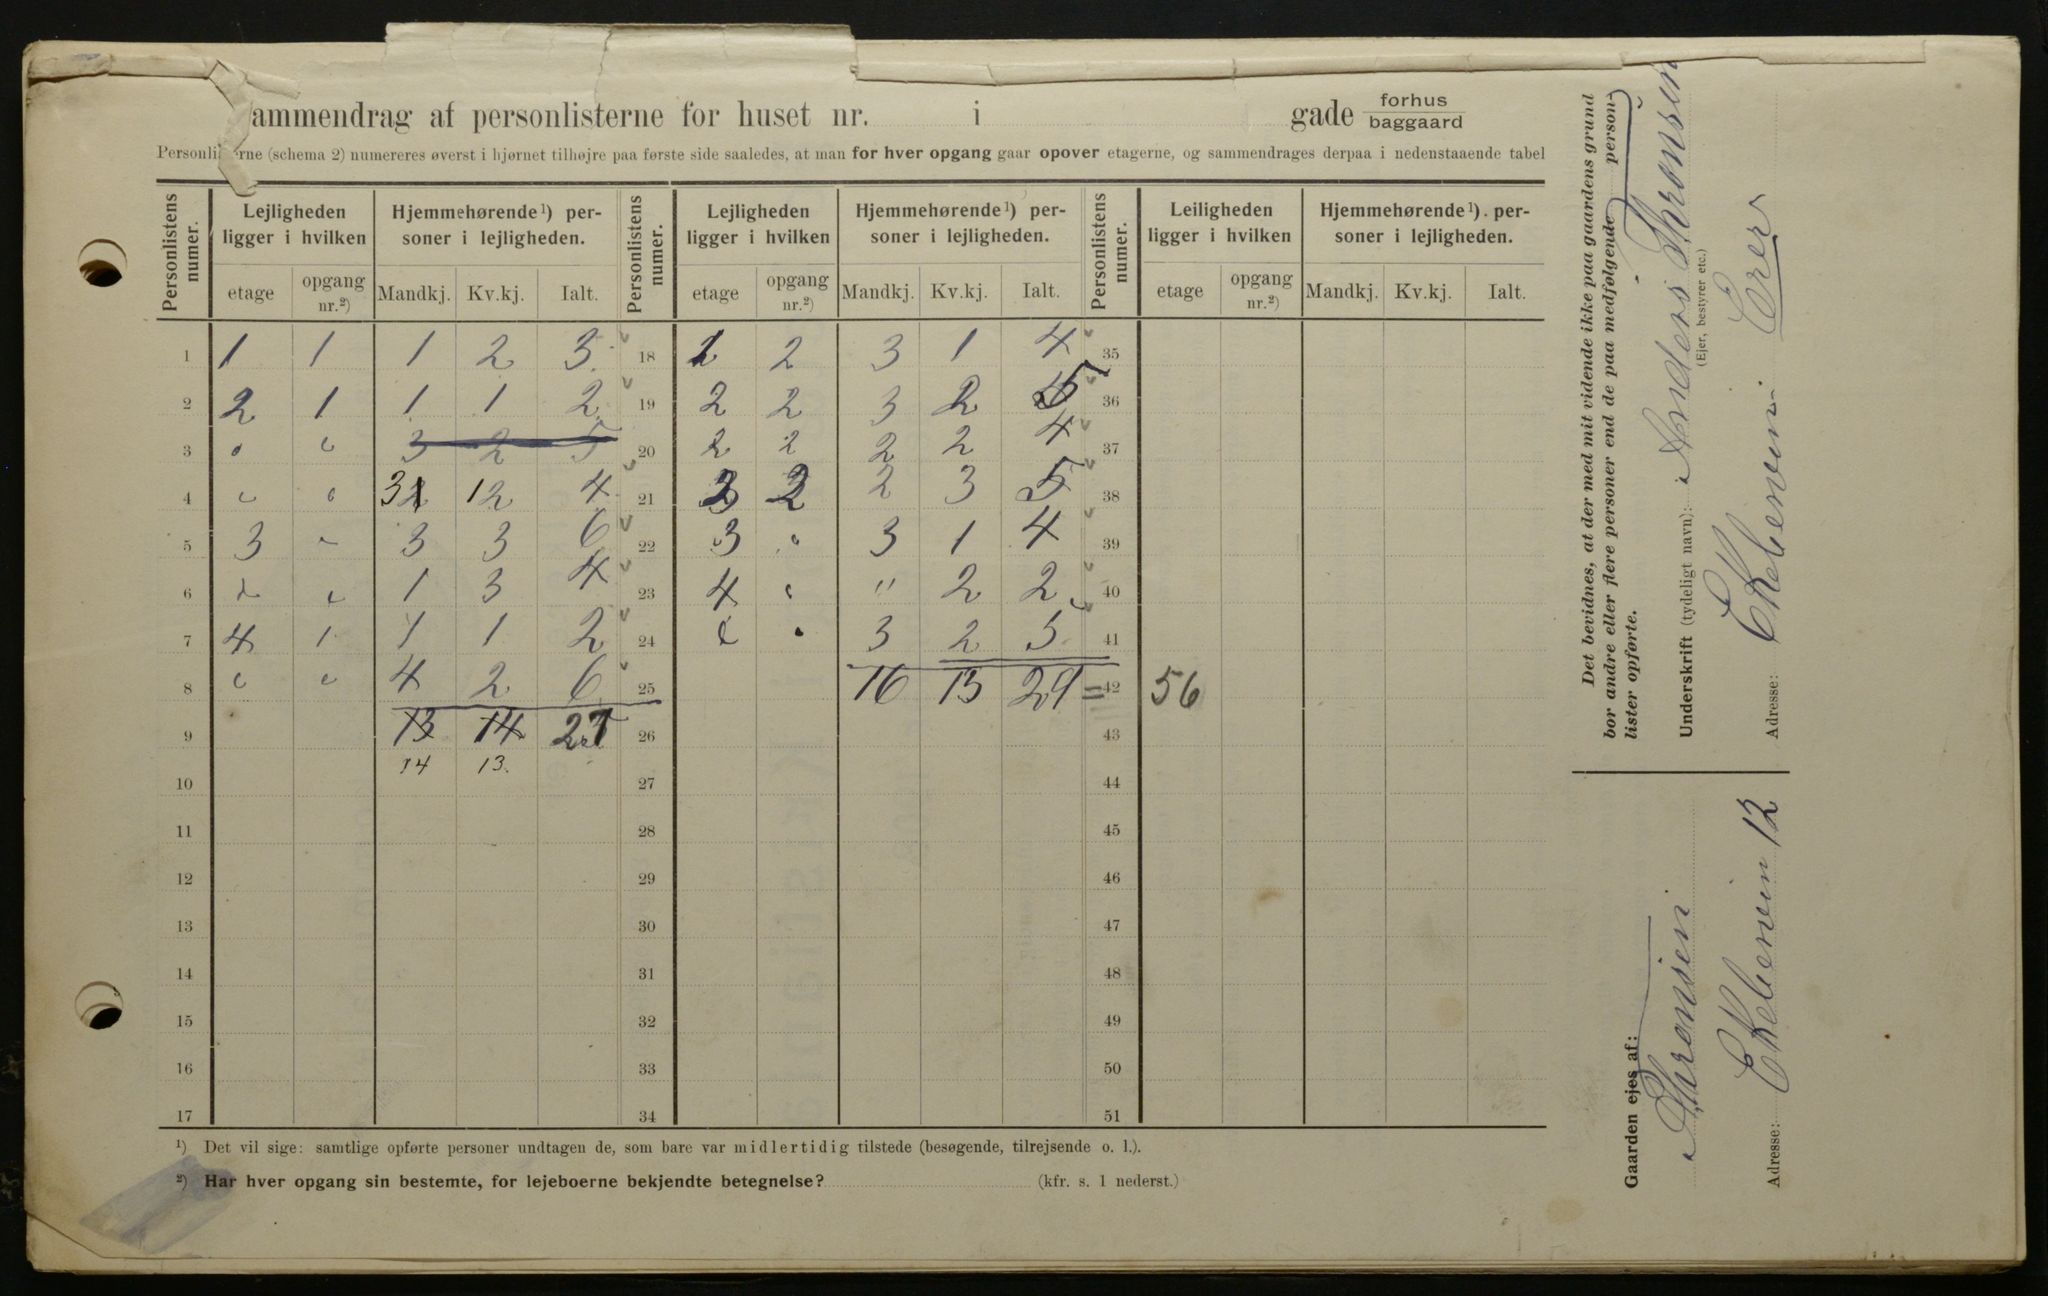 ammendrag af personlisterne for huset nr. i gade forhus baggaard
Personli rne (schema 2) numereres øverst i hjørnet tilhøjre paa første side saaledes, at man for hver opgang gaar opover etagerne, og sammendrages derpaa i nedenstaaende tabel
Personlistens numer. Lejligheden ligger i hvilken Hjemmehørende¹) personer i lejligheden. Personlistens numer. Lejligheden ligger i hvilken Hjemmehørende¹) personer i lejligheden. Personlistens numer. Leiligheden ligger i hvilken Hjemmehørende¹). personer i lejligheden.
etage opgang nr.²) Mandkj. Kv.kj. Ialt. etage opgang nr.²) Mandkj. Kv.kj. Ialt. etage opgang nr.²) Mandkj. Kv.kj. Ialt.
1 1 1 1 2 3 18 1 2 3 1 4 35
2 2 1 1 1 2 19 2 2 3 2 5 36
3 " " 3 2 5 20 2 2 2 2 4 37
4 " " 3 1 4 21 3 2 2 3 5 38
5 3 " 3 3 6 22 3 " 3 1 4 39
6 " " 1 3 4 23 4 " " 2 2 40
7 4 1 1 1 2 24 " " 3 2 5 41
8 " " 4 2 6 25 16 13 29 = 42 56
9 13 14 27 26 43
10 14 13 27 44
11 28 45
12 29 46
13 30 47
14 31 48
15 32 49
16 33 50
17 34 51
¹) Det vil sige: samtlige opførte personer undtagen de, som bare var midlertidig tilstede (besøgende, tilrejsende o. l.).
²) Har hver opgang sin bestemte, for lejeboerne bekjendte betegnelse? (kfr. s. 1 nederst.)
Det bevidnes, at der med mit vidende ikke paa gaardens grund
bor andre eller flere personer end de paa medfølgende person-
lister opførte.
Underskrift (tydeligt navn): Anders Thronsen
(Ejer, bestyrer etc.)
Adresse: Ekebervein Eier
Gaarden ejes af:
A. Thronsen
Adresse: Ekebervein 12